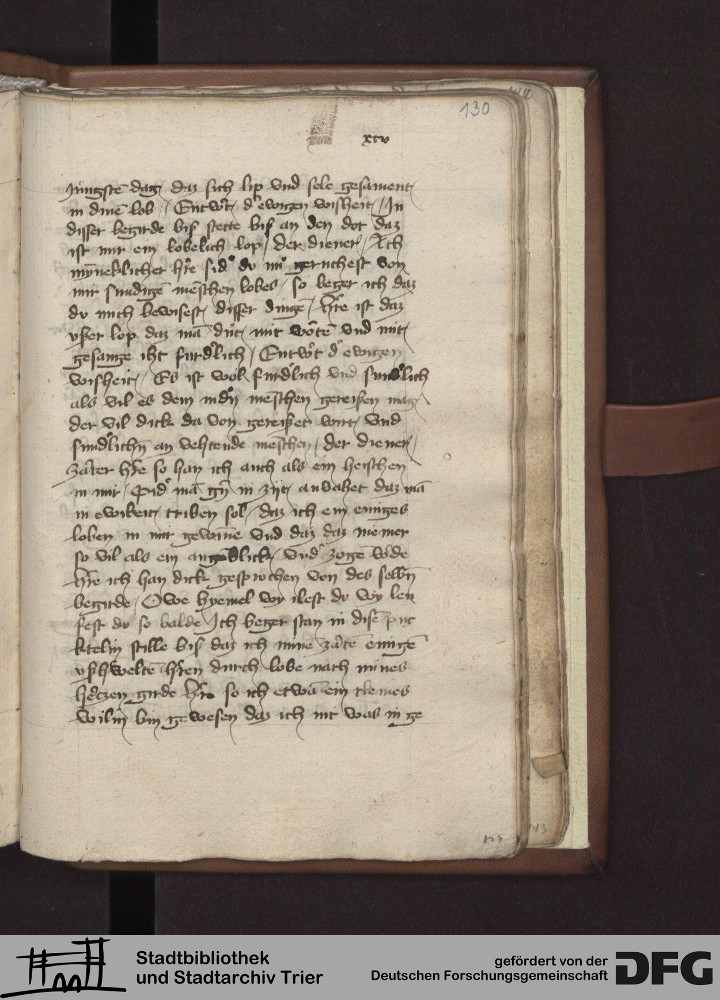 130
xcv
jungste dag daz sich lip vnd sele gesament
in dinē lob / Entwͦrt dˀ ewigen wisheit / In
disser begirde bis stette bis an den dot daz
ist mir ein lobelich lop / der diener / Ach
mynneklicher hˀre sid du nuͦ geruchest von
mir sundigē meschen lobes / so beger ich daz
du mich bewisest disser dinge / hˀre ist daz
vsser lop daz mā duͦt mit wortē vnd mit
gesange iht furdˀlich / Entwͦrt dˀ ewigen
wisheit / Es ist wol furdˀlich vnd sundˀlich
als vil es dem indˀn meschen gereissen mag
der vil dick da von gereisset wirt / vnd
sundˀlichn an vehtende meschen / der diener /
zarter hˀre so han ich auch als ein heischen
in mir / Sidˀ mā in zijt anvahet daz mā
in ewikeit triben sol / daz ich ein einiges
loben in mir gewinne vnd daz daz niemer
so vil als ein augeblick vndˀ zoge wˀde
hˀre ich han dick gesprochen von des selbn
begirde / Owe hyemel wy ilest du wy leu
fest du so balde Ich beger stan in disē pūc
ktelin stille bis daz ich mine zarte einigē
vsserweltē hˀren durch lobe nach mines
herczen girde hˀre so ich etwā ein cleines
wilin bin gewesen daz ich nit was in ge
123
143
Stadtbibliothek
und Stadtarchiv Trier
gefördert von der
Deutschen Forschungsgemeinschaft
DFG